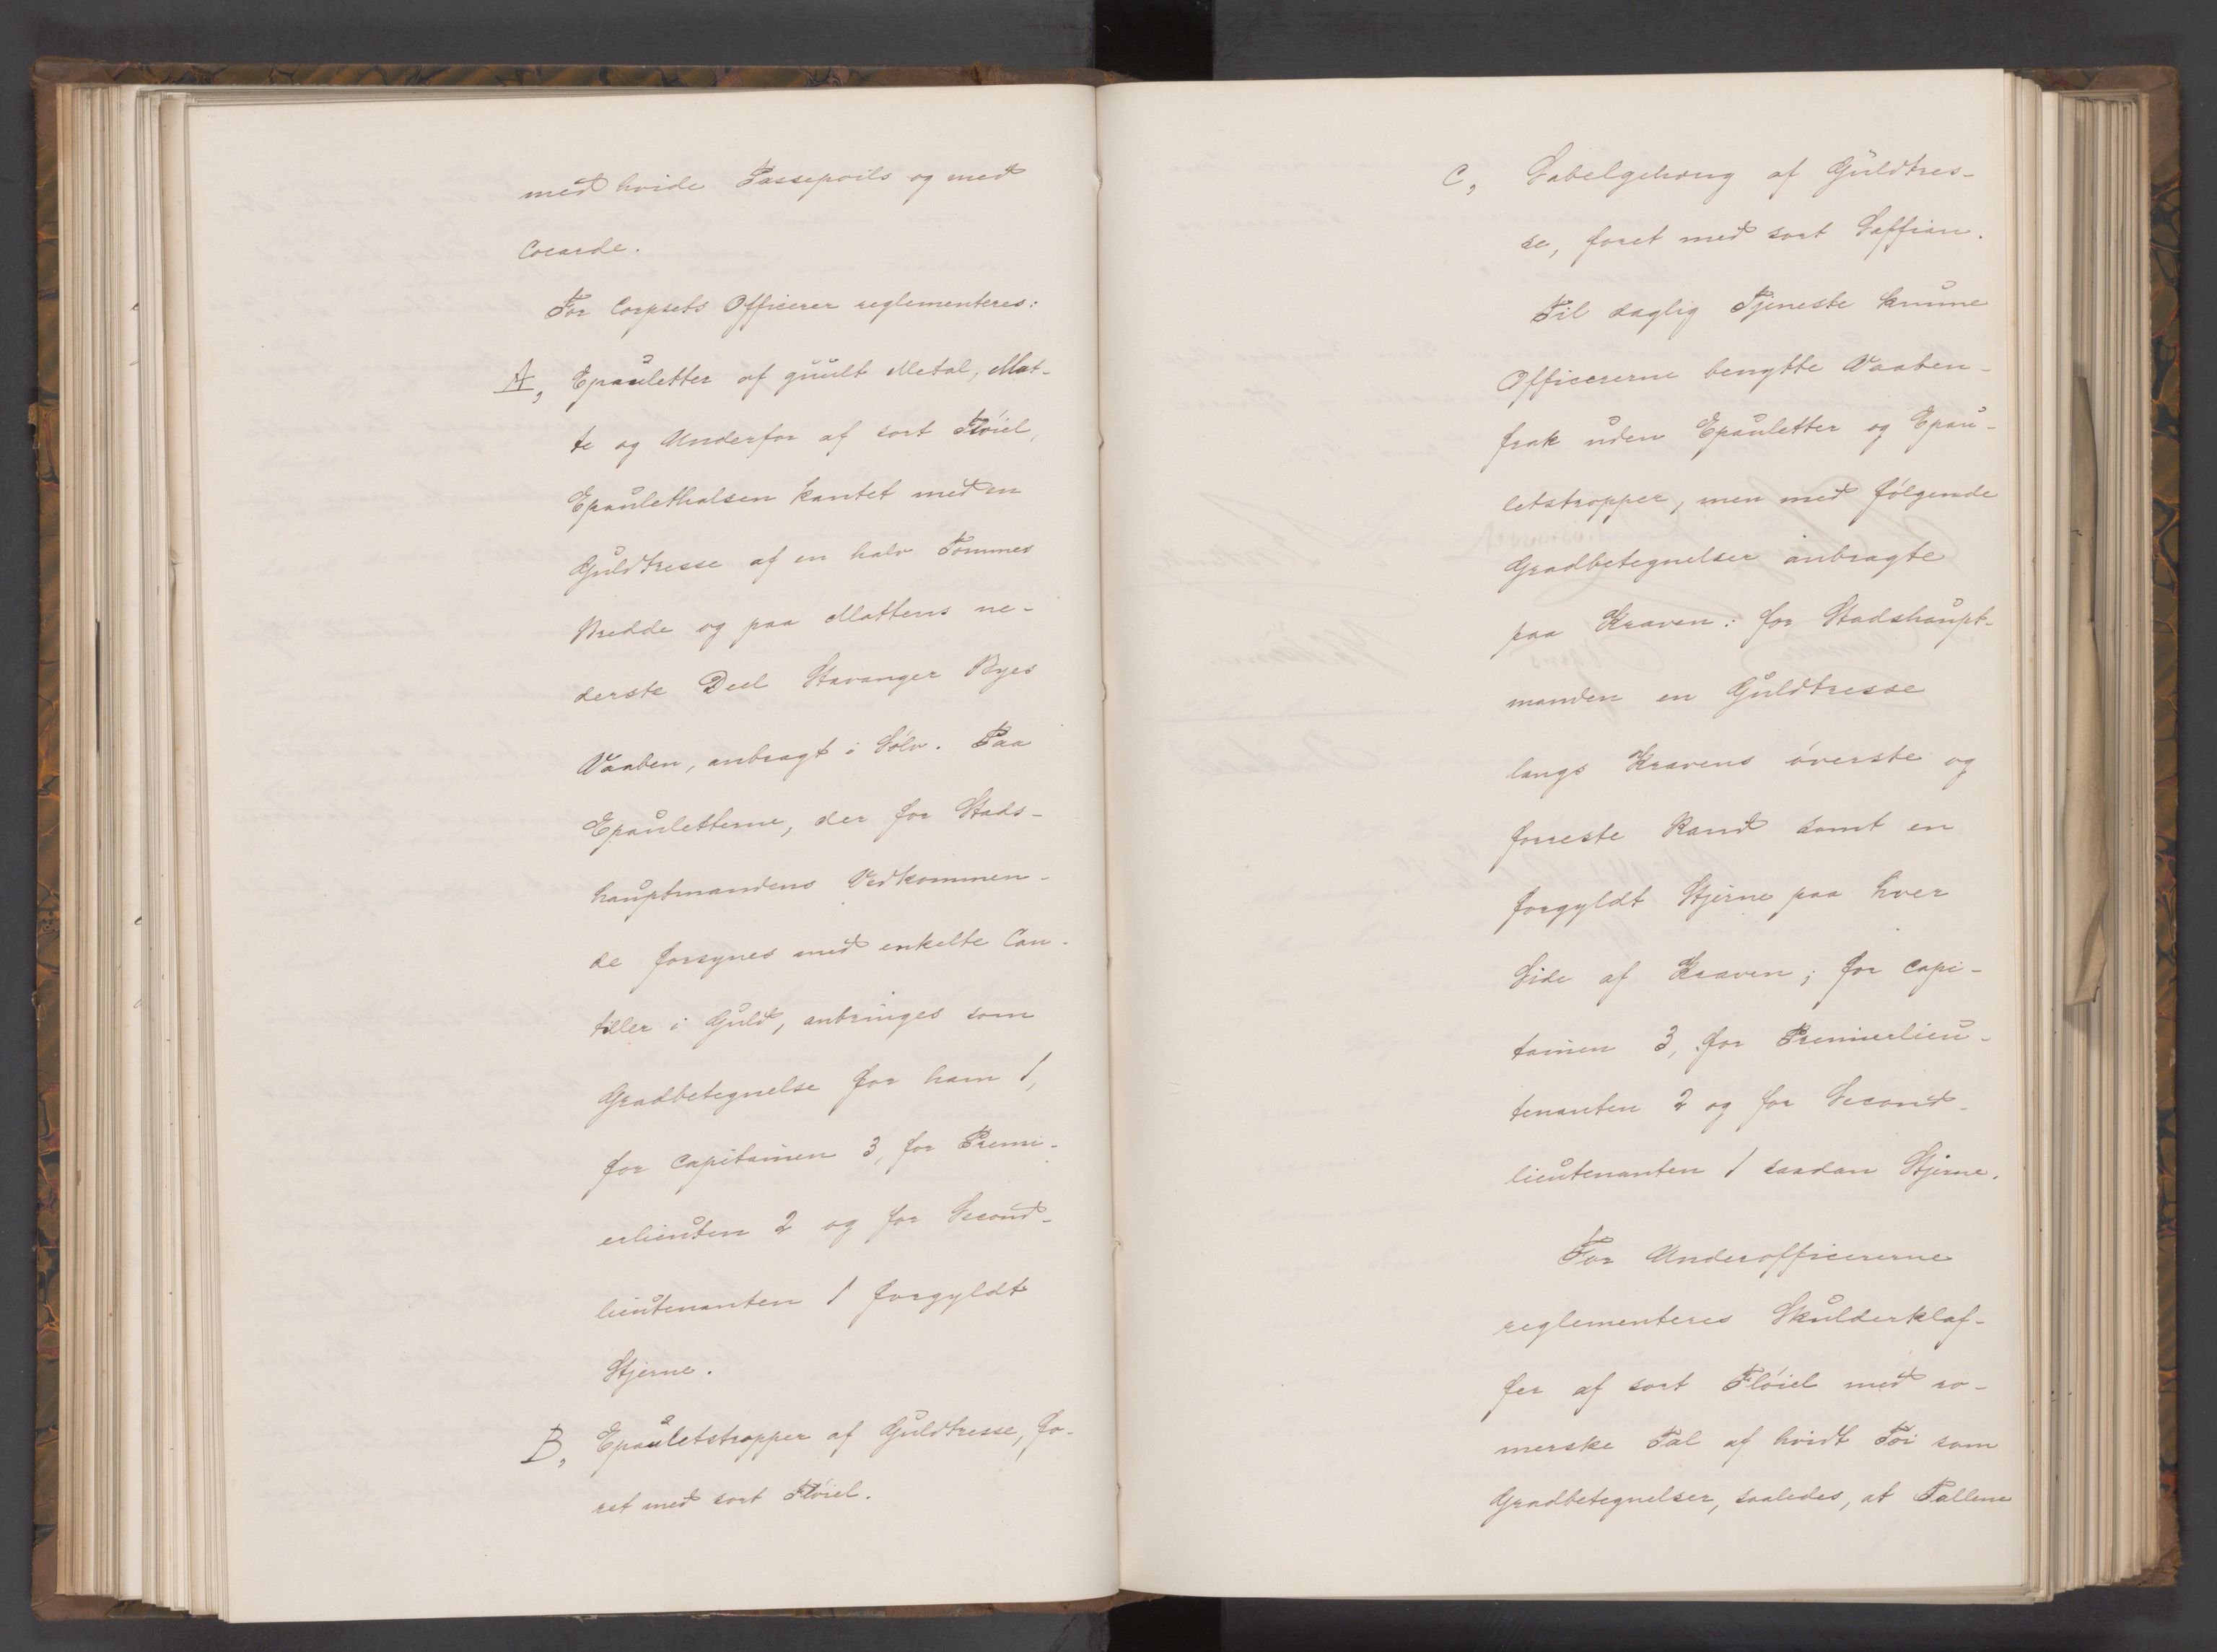 med hvide Passepoils og med
Cocarde.
For Corpsets Officerer reglementeres:
A, Epauletter af guult Metal, Mat-
te og Underfor af sort Fløiel,
Epaulethalsen kantet med en
Guldtresse af en halv Tommes
Bredde og paa Mattens ne-
derste Deel Stavanger Byes
Vaaben, anbragt i Sølv. Paa
Epauletterne, der for Stads-
hauptmandens Vedkommen-
de forsynes med enkelte Can-
tiller i Guld, anbringes som
Gradbetegnelse for ham 1,
for Capitainen 3, for Premi-
erlieuten 2 og for Second-
lieutenanten 1 forgyldt
Stjerne.
B, Epauletstropper af Guldtresse, fo-
ret med sort Fløiel.
C, Sabelgehæng af Guldtres-
se, foret med sort Saffian.
Til daglig Tjeneste kunne
Officererne benytte Vaaben-
frak uden Epauletter og Epau-
letstropper, men med følgende
Gradbetegnelser anbragte
paa Kraven: for Stadshaupt-
manden en Guldtresse
langs Kravens øverste og
forreste Rand samt en
forgyldt Stjerne paa hver
Side af Kraven; for Capi-
tainen 3, for Premierlieu-
tenanten 2 og for Second-
lieutenanten 1 saadan Stjerne.
For Underofficererne
reglementeres Skulderklaf-
fer af sort Fløiel med ro-
merske Tal af hvidt Tøi som
Gradbetegnelser, saaledes, at Tallene